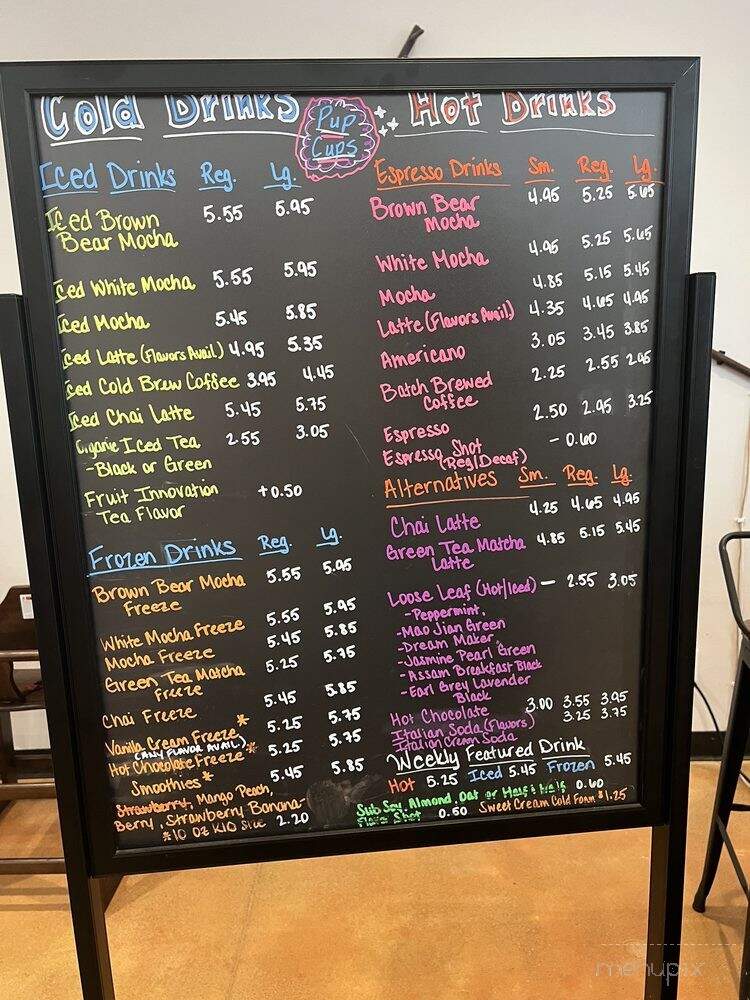 Cold Drinks
Pup
Cups
Hot Drinks
Iced Drinks Reg. Lg.
Iced Brown 5.55 5.95
Bear Mocha
Iced White Mocha 5.55 5.95
Iced Mocha 5.45 5.85
Iced Latte (Flavors Avail.) 4.95 5.35
Iced Cold Brew Coffee 3.95 4.45
Iced Chai Latte 5.45 5.75
Organic Iced Tea 2.55 3.05
- Black or Green
Fruit Innovation +0.50
Tea Flavor
Frozen Drinks Reg. Lg.
Brown Bear Mocha 5.55 5.95
Freeze
White Mocha Freeze 5.55 5.95
Mocha Freeze 5.45 5.85
Green Tea Matcha 5.25 5.75
Freeze
Chai Freeze 5.45 5.85
Vanilla Cream Freeze* 5.25 5.75
(ANY FLAVOR AVAIL)
Hot Chocolate Freeze* 5.25 5.75
Smoothies* 5.45 5.85
Strawberry, Mango Peach,
Berry, Strawberry Banana-
*10 OZ KID SIZE 2.20
Espresso Drinks Sm. Reg. Lg.
Brown Bear 4.95 5.25 5.65
Mocha
White Mocha 4.95 5.25 5.65
Mocha 4.85 5.15 5.45
Latte (Flavors Avail.) 4.35 4.65 4.95
Americano 3.05 3.45 3.85
Batch Brewed 2.25 2.55 2.95
Coffee
Espresso 2.50 2.95 3.25
Espresso Shot - 0.60
(Reg/Decaf)
Alternatives Sm. Reg. Lg.
Chai Latte 4.25 4.65 4.95
Green Tea Matcha 4.85 5.15 5.45
Latte
Loose Leaf (Hot/Iced) - 2.55 3.05
- Peppermint,
- Mao Jian Green
- Dream Maker,
- Jasmine Pearl Green
- Assam Breakfast Black
- Earl Grey Lavender
Black
Hot Chocolate 3.00 3.55 3.95
Italian Soda (Flavors) 3.25 3.75
Italian Cream Soda
Weekly Featured Drink
Hot 5.25 Iced 5.45 Frozen 5.45
Sub Soy, Almond, Oat or Half & Half 0.60
Flavor Shot 0.50 Sweet Cream Cold Foam $1.25
menupix